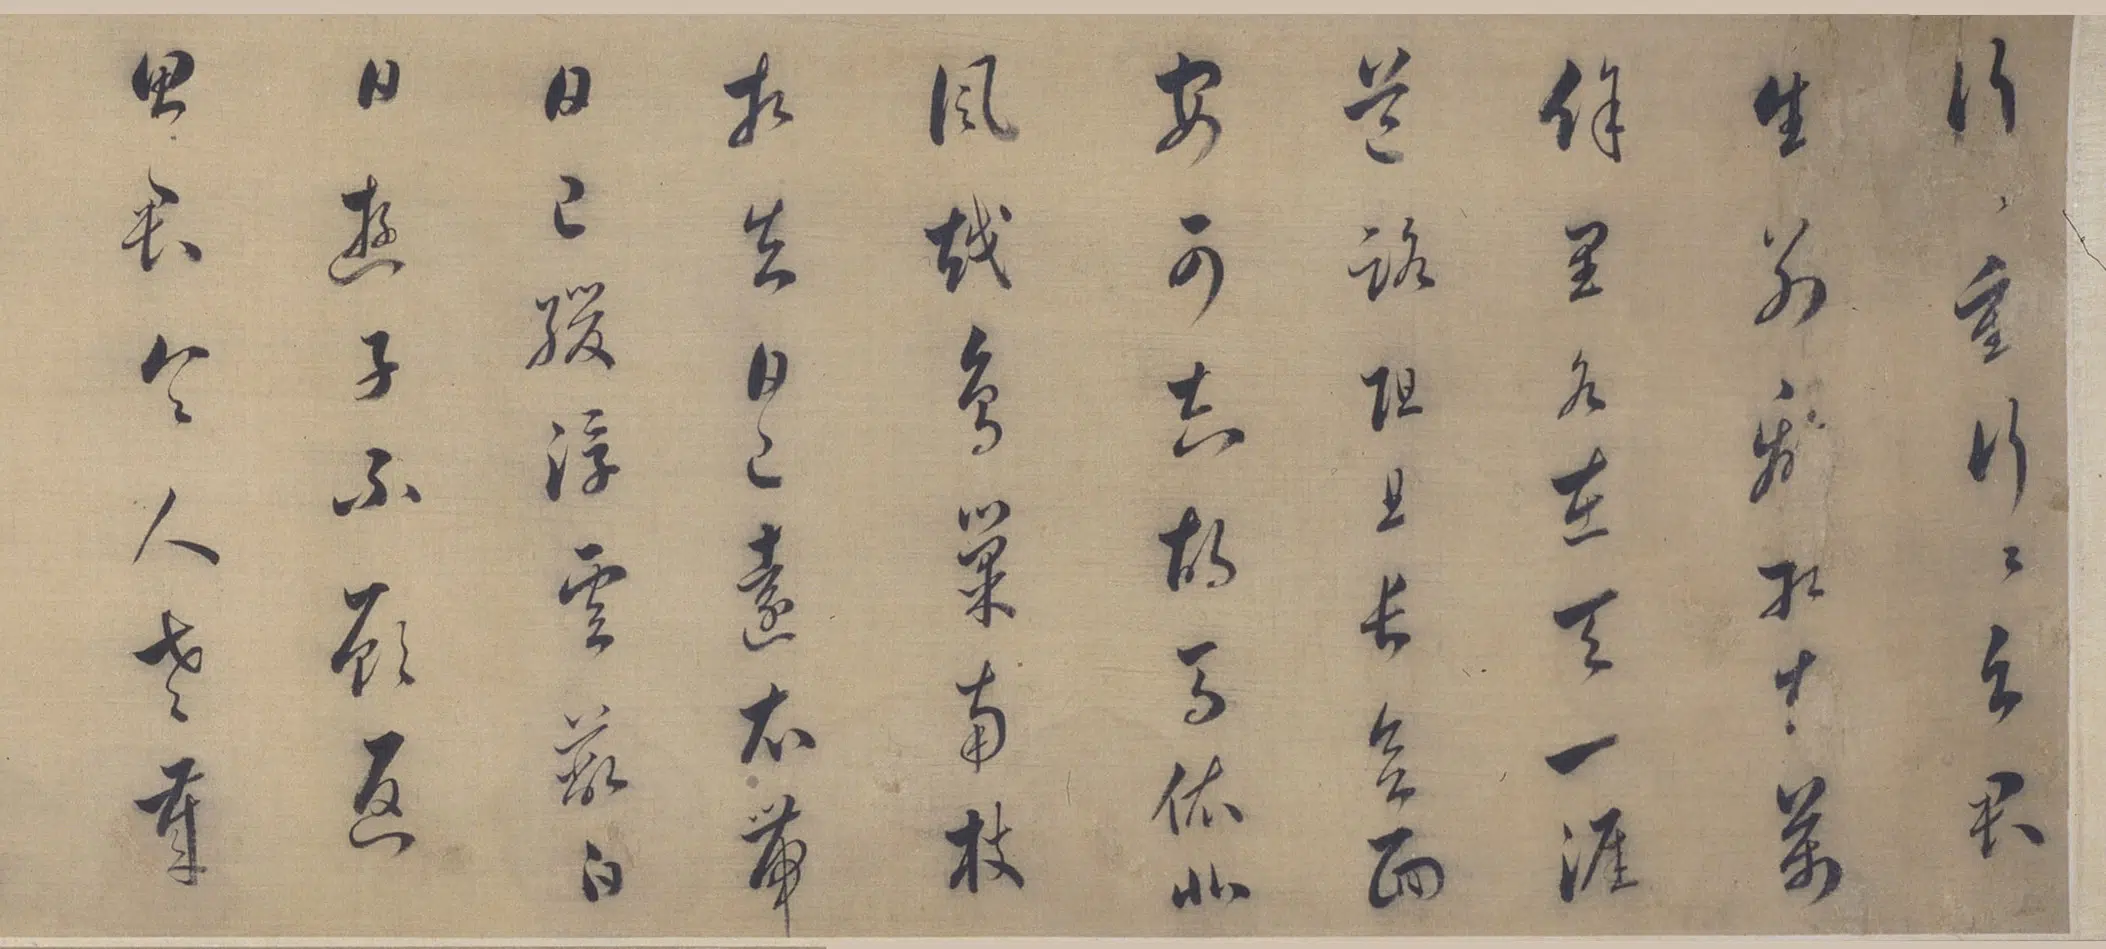 行〻重行〻与君
生別離相去萬
餘里各在天一涯
道路阻且長會面
安可知胡馬依北
風越鳥巢南枝
相去日已遠衣帶
日已緩浮雲蔽白
日遊子不顧返
思君令人老歲